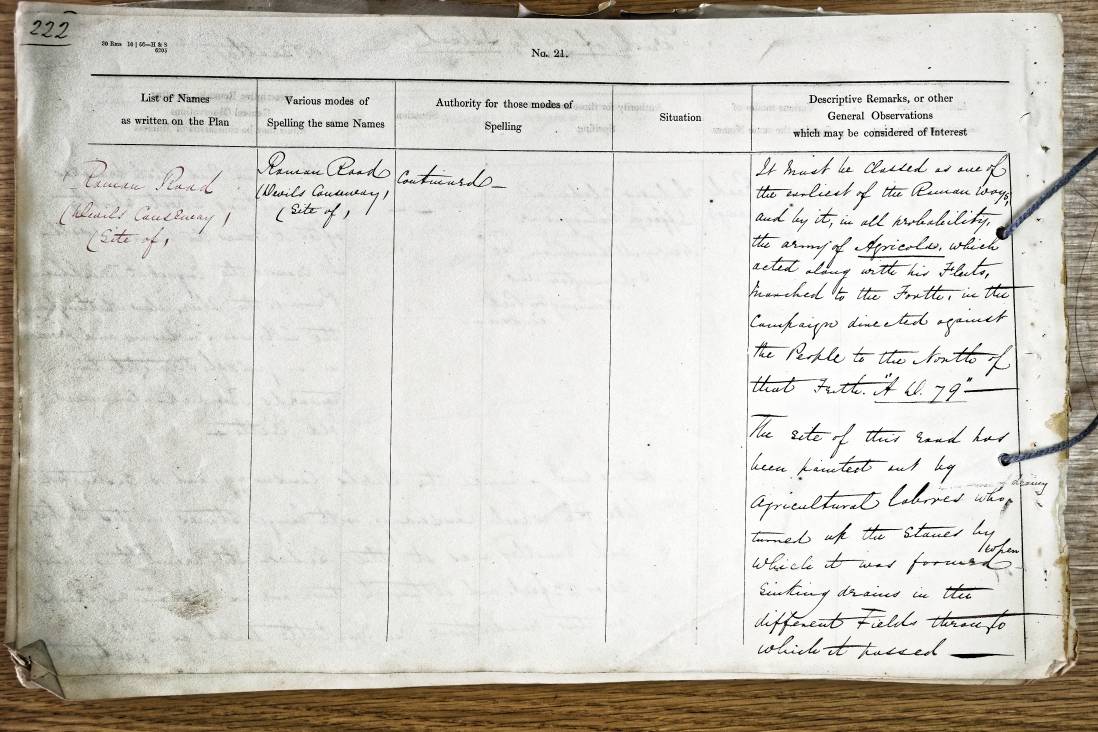 222
20 Rms 10 | 56—H & S
6205
No. 21.
List of Names
as written on the Plan
Various modes of
Spelling the same Names
Authority for those modes of
Spelling
Situation
Descriptive Remarks, or other
General Observations
which may be considered of Interest
Roman Road
(Devils Causeway,
(Site of,
Roman Road
(Devils Causeway,
(Site of,
Continued
It must be Classed as one of
the earliest of the Roman Ways,
and by it, in all probability,
the army of Agricola, which
acted along with his Fleets,
Marched to the Forth, in the
Campaign directed against
the People to the North of
that Frith. "A. D. 79"
The site of this road has
been pointed out by
Agricultural laborers who,
turned up the Stones by
which it was formed when
Sinking drains in the
different Fields through
which it passed